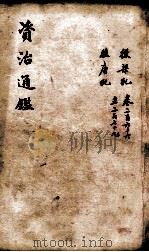 資治通鑑
後梁紀 卷二百六十六
後唐紀 至二百七十
研狗